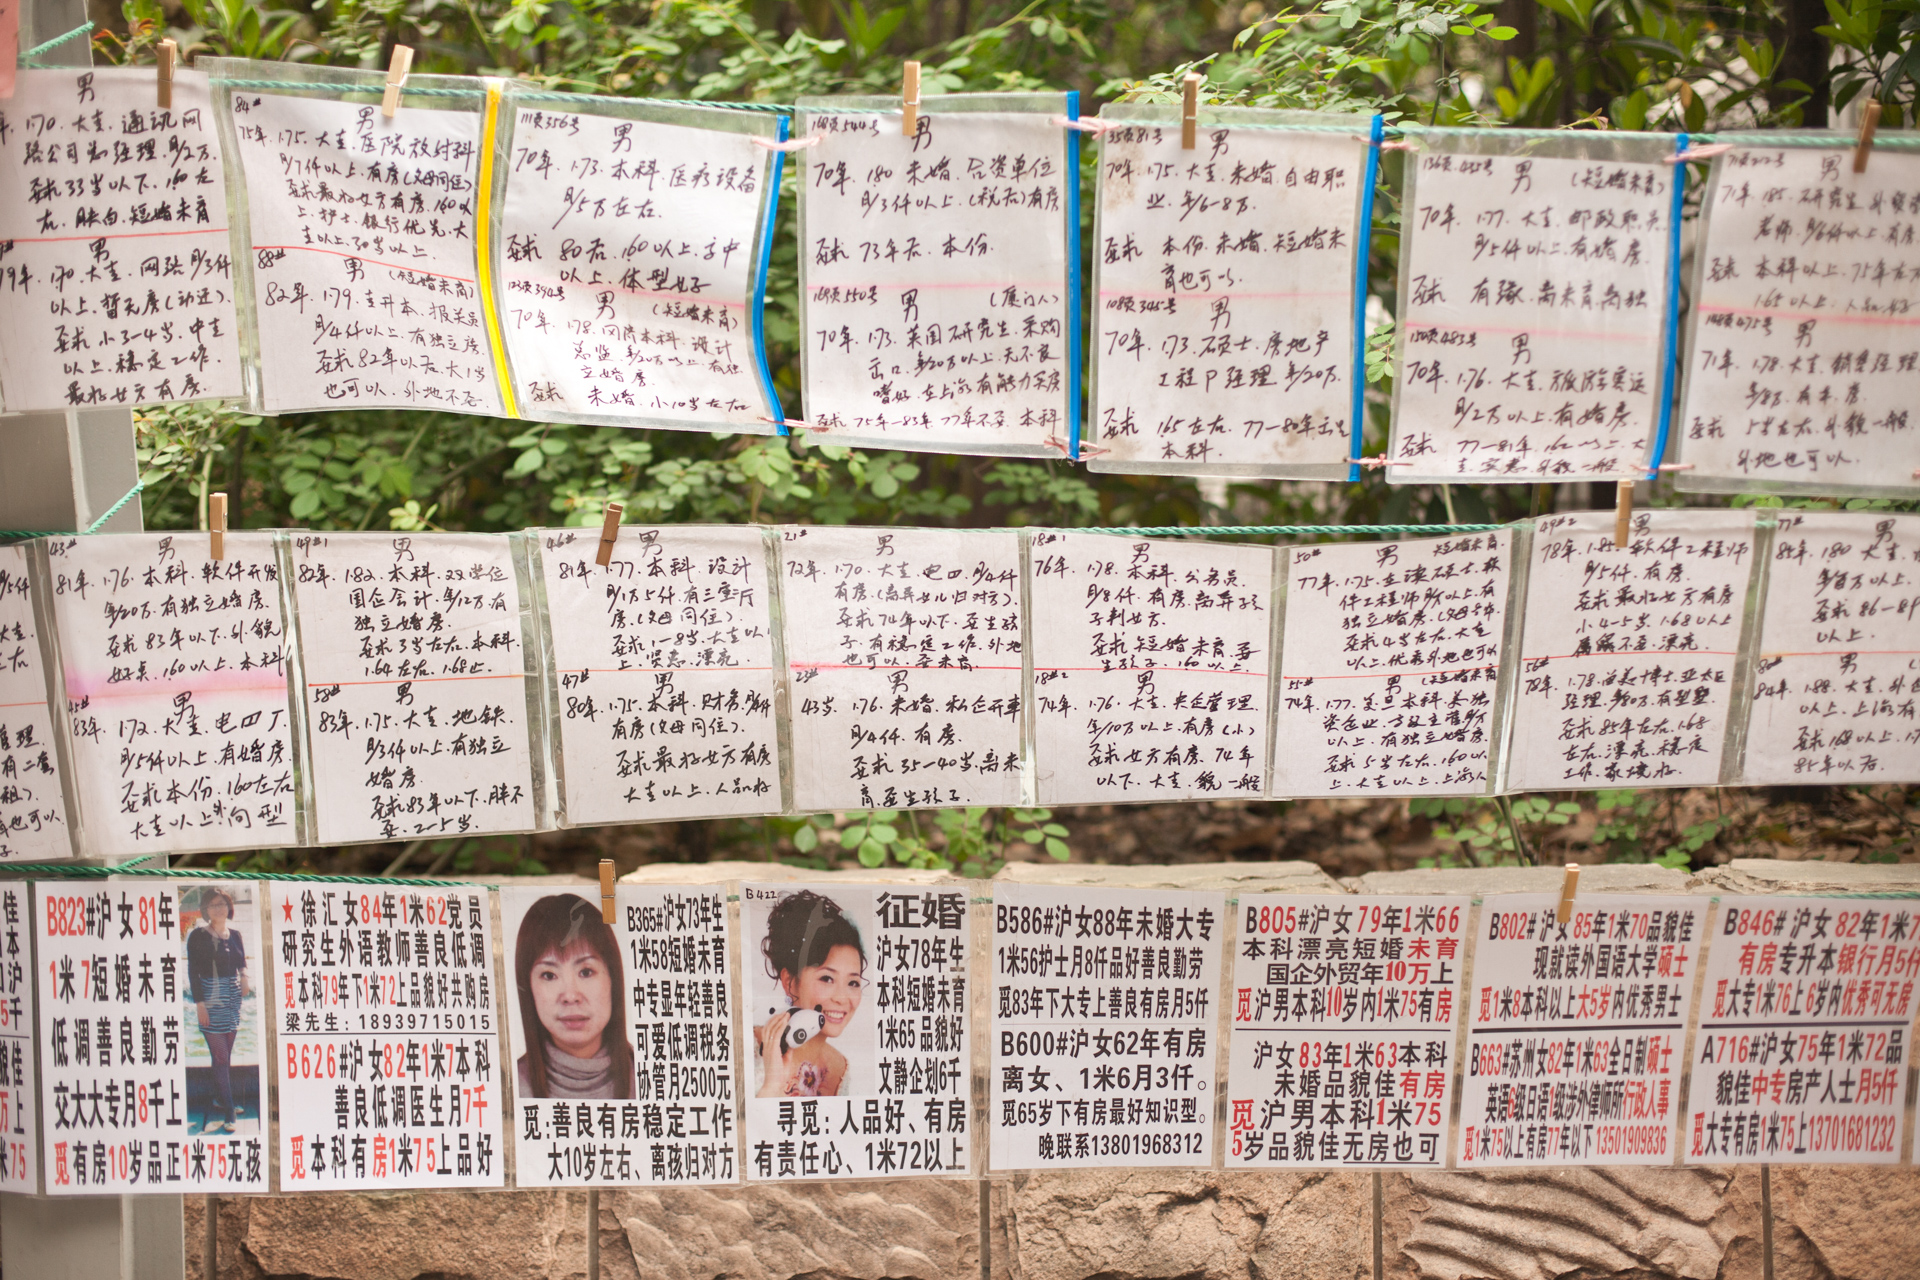 男
170.大专.通讯网
路公司总经理.月/2万.
要求33岁以下.160左
右.肤白.短婚未育
男
79年.170.大专.网站 月/3仟
以上.暂无房(动迁).
要求小3-4岁.中专
以上.稳定工作.
最好女方有房.
84#
男
75年.175.大专.医院放射科
月/7仟以上.有房(父母同住)
要求最好女方有房.160以
上.护士.银行优先.大
专以上.30岁以上.
88#
男
(短婚未育)
82年.179.专升本.报关员
月/4仟以上.有独立房.
要求82年以后.大1岁
也可以.外地不要.
111页356号
男
70年.173.本科.医疗设备
月/5万左右.
要求 80后.160以上.高中
以上.体型好
123页394号
男
(短婚未育)
70年.178.同济本科.设计
总监.年/20万以上.有独
立婚房.
要求 未婚.小10岁左右
168页544号
男
70年.180 未婚.合资单位
月/3仟以上.(税后)有房
要求 73年后.本份.
169页550号
男
(厦门人)
70年.173.英国研究生.采购
出口.年/20万以上.无不良
嗜好.在上海有能力买房
要求 75年-83年 77年不要.本科
35页81号
男
70年.175.大专.未婚.自由职
业.年/6-8万.
要求 本份.未婚.短婚未
育也可以.
108页345号
男
70年.173.硕士.房地产
工程P经理 年/20万.
要求 165左右.77-80年出生
本科.
136页435号
男
(短婚未育)
70年.177.大专.邮政职员
月/5仟以上.有婚房.
要求 有缘.离未育.离独
150页483号
男
70年.176.大专.旅游客运
月/2万以上.有婚房.
要求 77-81年.160以上.大
专.贤惠.外貌一般
71页212号
男
71年.185.研究生
老师.月/6仟以上.有房.
要求 本科以上.75年左右
165以上.人品好
148页475号
男
71年.178.大专.销售经理
年/8万.有车.房.
要求 5岁左右.外貌一般.
外地也可以.
43#
男
81年.176.本科.软件开发
年/20万.有独立婚房.
要求83年以下.外貌
好点.160以上.本科
45#
男
83年.172.大专.电四厂.
月/5仟以上.有婚房.
要求本份.160左右
大专以上.外向型
49#1
男
82年.182.本科.双学位
国企会计.年/12万.有
独立婚房.
要求3岁左右.本科.
1.64左右.1.68止.
58#
男
83年.175.大专.地铁.
月/3仟以上.有独立
婚房
要求83年以下.胖不
要.2-5岁.
46#
男
81年.177.本科.设计
月/1万5仟.有三室一厅
房.(父母同住).
要求1-8岁.大专以
上.贤惠.漂亮
47#
男
80年.175.本科.财务.月/5仟
有房(父母同住)
要求最好女方有房
大专以上.人品好
21#
男
72年.170.大专.电四.月/4仟
有房.(离异女儿归对方).
要求74年以下.要生孩
子.有稳定工作.外地
也可以.要未育.
23#
男
43岁.176.未婚.私企开车
月/4仟.有房.
要求35-40岁.离未
育.要生孩子.
18#1
男
76年.178.本科.公务员.
月/8仟.有房.离异.孩
子判女方.
要求短婚未育.要
生孩子.160以上.
18#2
男
74年.176.大专.央企管理.
年/10万以上.有房(小)
要求女方有房.74年
以下.大专.貌一般
50#
男
短婚未育.
独立婚房.(父母去世)
要求4岁左右.大专
以上.优秀外地也可以
55#
男
(短婚未育)
74年.177.复旦本科.美独
资企业.
以上.有独立婚房.
要求5岁左右.160以
上.大专以上.上海人
49#2
男
78年.185.软件工程师
月/5仟.有房.
要求最好女方有房
小4-5岁.1.68以上
属猴不要.漂亮.
56#
78年.178.留美博士.亚太区
经理.年/80万.有别墅
要求85年左右.168
左右.漂亮.稳定
工作.家境好.
77#
男
85年.180 大专.
年/百万以上.
要求86-89
以上.
80#
男
84年.188.大专.外
以上.上海有
要求168以上.
85年以后.
B823#沪女81年
1米7短婚未育
低调善良勤劳
交大大专月8千上
觅有房10岁品正1米75无孩
★徐汇女84年1米62党员
研究生外语教师善良低调
觅本科79年下1米72上品貌好共购房
梁先生：18939715015
B626#沪女82年1米7本科
善良低调医生月7千
觅本科有房1米75上品好
B365#沪女73年生
1米58短婚未育
中专显年轻善良
可爱低调税务
协管月2500元
觅:善良有房稳定工作
大10岁左右、离孩归对方
B422
征婚
沪女78年生
本科短婚未育
1米65品貌好
文静企划6千
寻觅：人品好、有房
有责任心、1米72以上
B586#沪女88年未婚大专
1米56护士月8仟品好善良勤劳
觅83年下大专上善良有房月5仟
B600#沪女62年有房
离女、1米6月3仟。
觅65岁下有房最好知识型。
晚联系13801968312
B805#沪女79年1米66
本科漂亮短婚未育
国企外贸年10万上
觅沪男本科10岁内1米75有房
沪女83年1米63本科
未婚品貌佳有房
觅沪男本科1米75
5岁品貌佳无房也可
B802#沪女85年1米70品貌佳
现就读外国语大学硕士
觅1米8本科以上大5岁内优秀男士
B663#苏州女82年1米63全日制硕士
英语6级日语1级涉外律师所行政人事
觅1米75以上有房77年以下13501909836
B846#沪女82年1米7
有房专升本银行月5仟
觅大专1米76上6岁内优秀可无房
A716#沪女75年1米72品
貌佳中专房产人士月5仟
觅大专有房1米75上13701681232